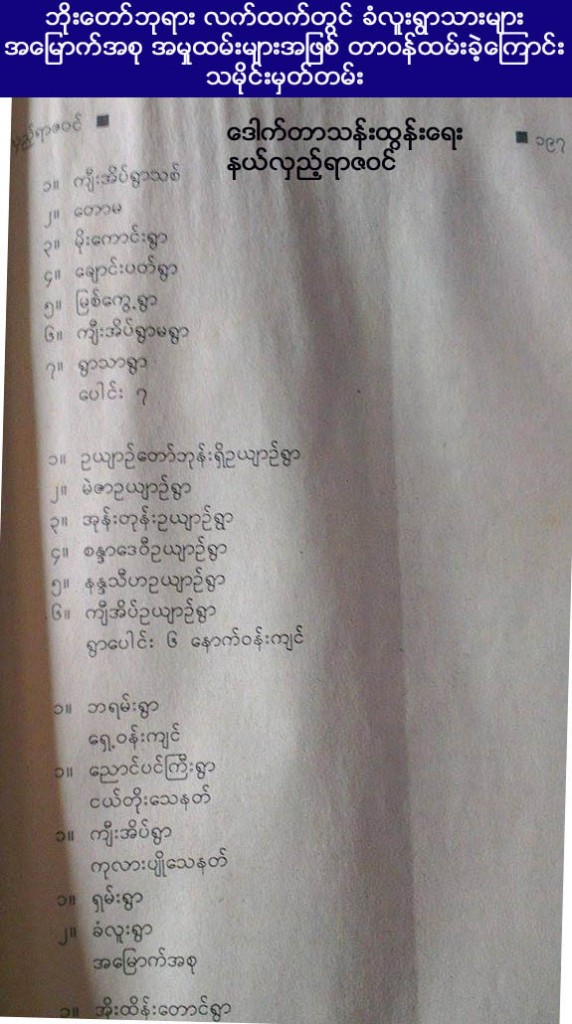 ဘိုးတော်ဘုရား လက်ထက်တွင် ခံလူးရွာသားများ
အမြောက်အစု အမှုထမ်းများအဖြစ် တာဝန်ထမ်းခဲ့ကြောင်း
သမိုင်းမှတ်တမ်း
လှည့်ရာဇဝင် ■
ဒေါက်တာသန်းထွန်းရေး
နယ်လှည့်ရာဇဝင်
■ ၁၉၇
၁။ ကျီးအိပ်ရွာသစ်
၂။ တောမ
၃။ မိုးကောင်းရွာ
၄။ ချောင်းပတ်ရွာ
၅။ မြစ်ကွေ့ရွာ
၆။ ကျီးအိပ်ရွာမရွာ
၇။ ရွာသာရွာ
ပေါင်း ၇
၁။ ဥယျာဉ်တော်ဘုန်းရှိဥယျာဉ်ရွာ
၂။ မဲဇာဥယျာဉ်ရွာ
၃။ အုန်းတုန်းဥယျာဉ်ရွာ
၄။ စန္ဒာဒေဝီဥယျာဉ်ရွာ
၅။ နန္ဒသီဟဥယျာဉ်ရွာ
၆။ ကျီအိပ်ဥယျာဉ်ရွာ
ရွာပေါင်း ၆ နောက်ဝန်းကျင်
၁။ ဘရမ်းရွာ
ရှေ့ဝန်းကျင်
၁။ ညောင်ပင်ကြီးရွာ
ငယ်တိုးသေနတ်
၁။ ကျီးအိပ်ရွာ
ကုလားပျိုသေနတ်
၁။ ရှမ်းရွာ
၂။ ခံလူးရွာ
အမြောက်အစု
၁။ အိုးထိန်းတောင်ရွာ